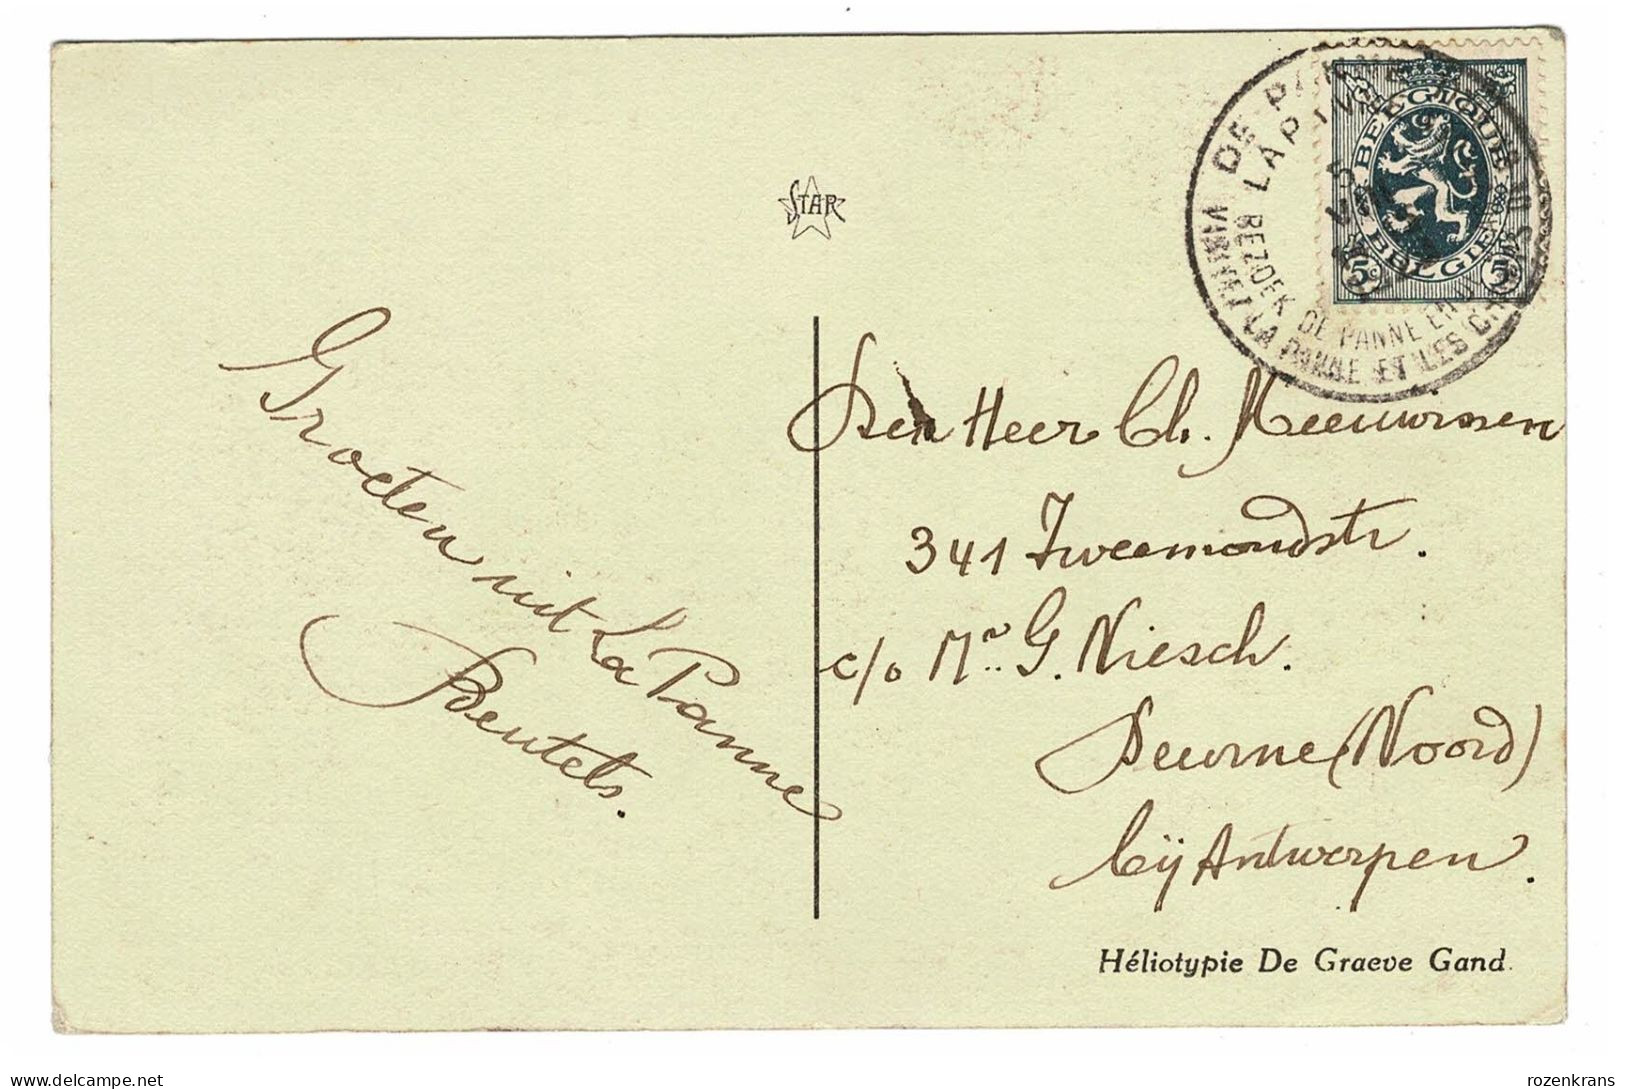 DE PANNE
LA PANNE
BEZOEK DE PANNE EN
LA PANNE ET LES
BELGIQUE
BELGIE
5c 5c
STAR
Groeten uit La Panne
Beutels.
Den Heer Ch. Meeuwissen
341 Tweemondstr.
c/o Mr. G. Niesch.
Deurne (Noord)
bij Antwerpen.
Héliotypie De Graeve Gand.
delcampe.net
rozenkrans